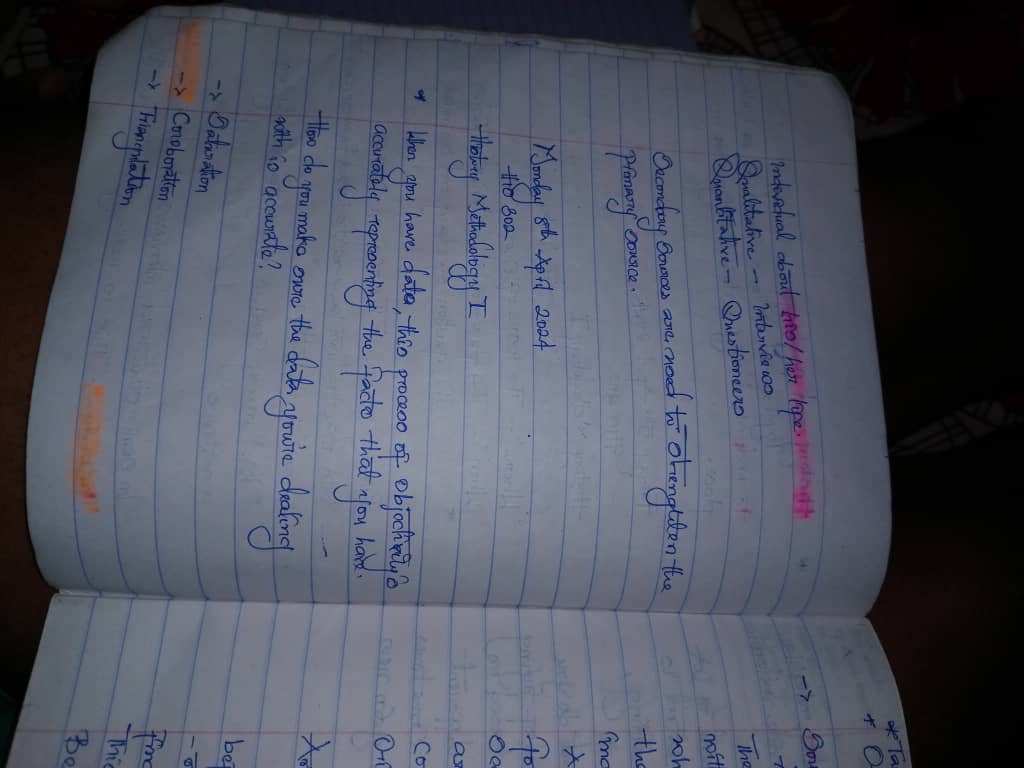 individual about his/her life.
Qualitative - Interviews
Quantitative - Questioneers
Secondary Sources are need to strengthen the
primary source.
Monday 8th April 2024
HIS 302
History Methodology I
* When you have data, this process of objectivity is
accurately representing the facts that you have.
How do you make sure the data you're dealing
with is accurate?
-> Saturation
-> Coroboration
-> Triangulation
* Ta
* O
-> Sou
The
with
wh
the
ma
A
for
Oc
as
co
Ori
be
Thi
Be